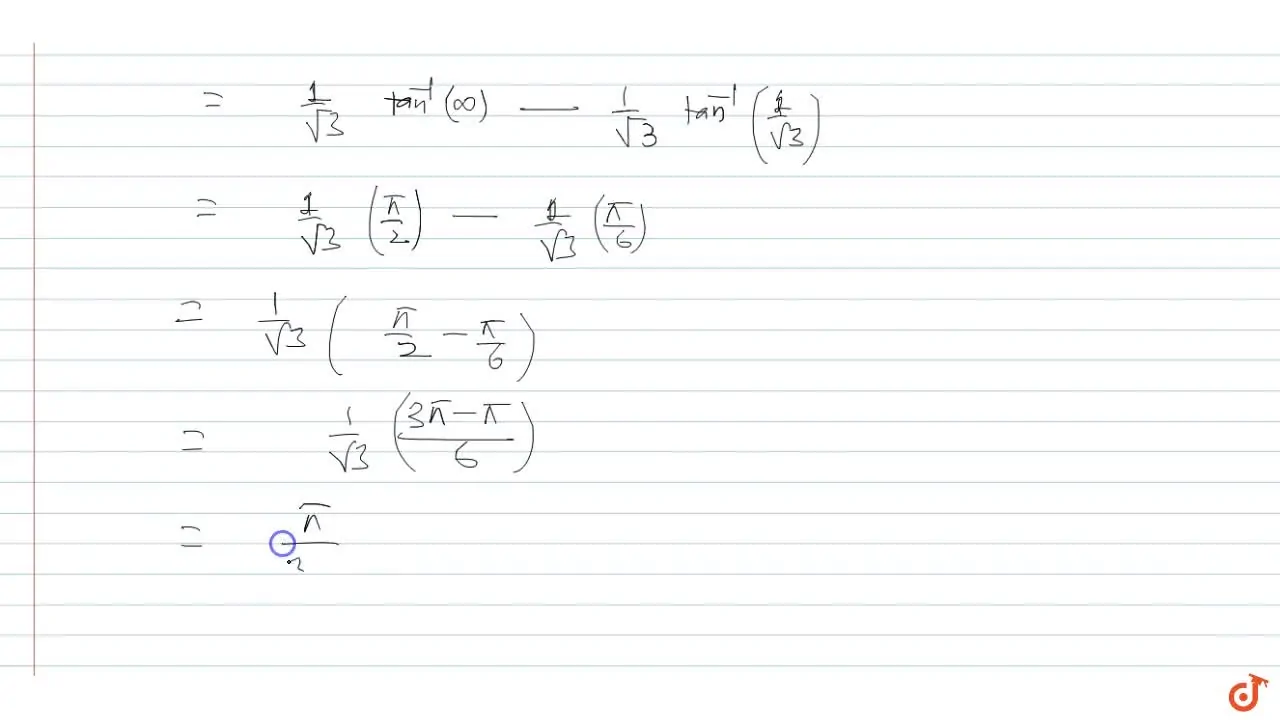 = 1/√3 tan⁻¹(∞) — 1/√3 tan⁻¹(1/√3)
= 1/√3 (π/2) — 1/√3 (π/6)
= 1/√3 (π/2 − π/6)
= 1/√3 ((3π−π)/6)
= π/3